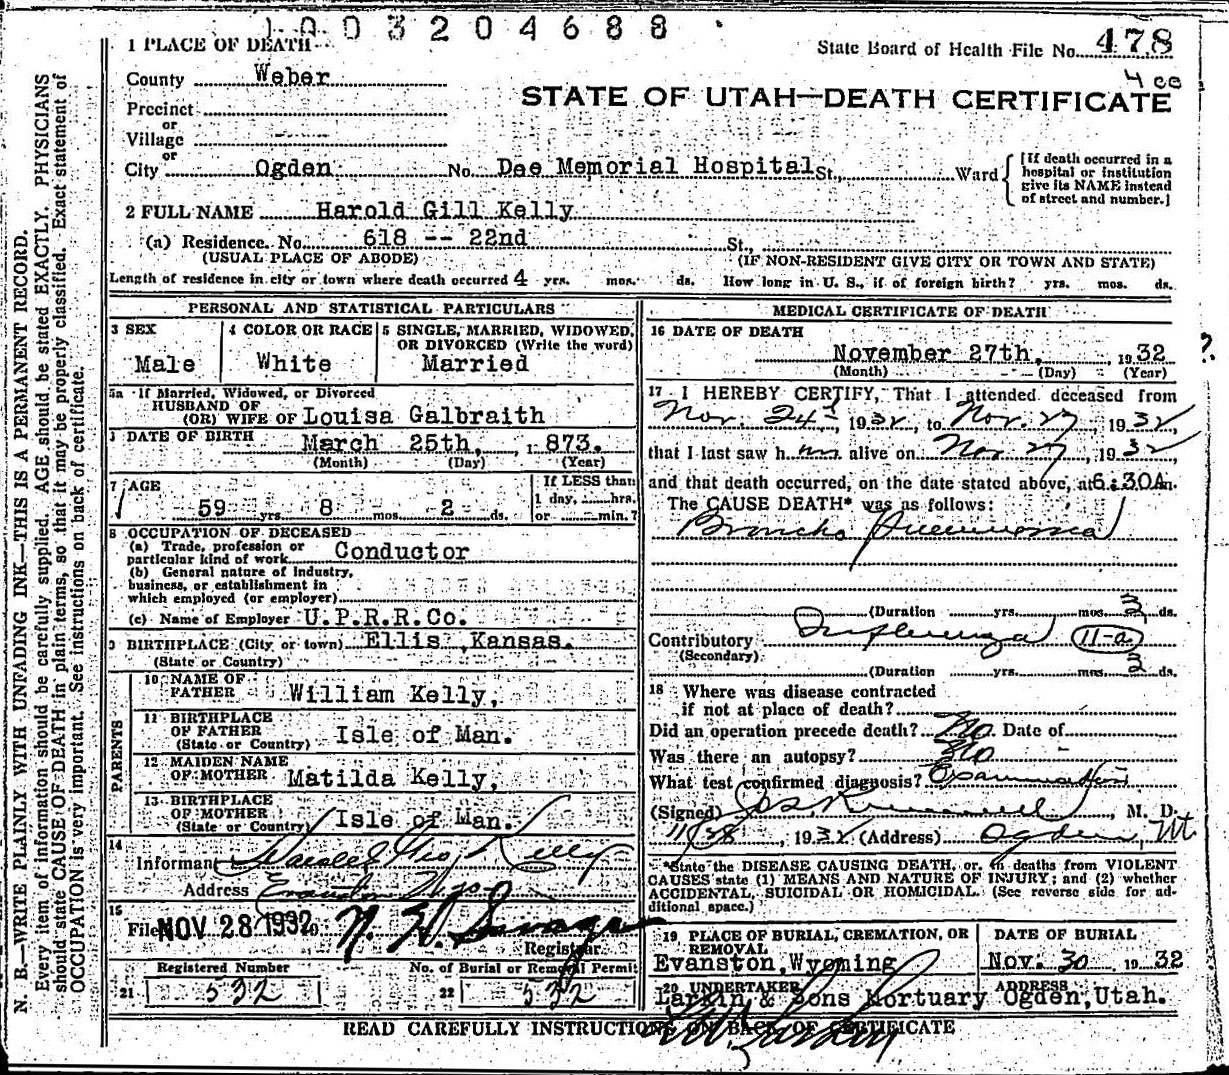 1003204688
1 PLACE OF DEATH
State Board of Health File No. 478
County Weber
4 cc
STATE OF UTAH—DEATH CERTIFICATE
Precinct
or
Village
or
City Ogden No. Dee Memorial Hospital St., Ward
[If death occurred in a hospital or institution give its NAME instead of street and number.]
2 FULL NAME Harold Gill Kelly
(a) Residence. No. 618 -- 22nd St.,
(USUAL PLACE OF ABODE) (IF NON-RESIDENT GIVE CITY OR TOWN AND STATE)
Length of residence in city or town where death occurred 4 yrs. mos. ds. How long in U. S., if of foreign birth? yrs. mos. ds.
PERSONAL AND STATISTICAL PARTICULARS
3 SEX
Male
4 COLOR OR RACE
White
5 SINGLE, MARRIED, WIDOWED,
OR DIVORCED (Write the word)
Married
5a If Married, Widowed, or Divorced
HUSBAND OF
(OR) WIFE OF Louisa Galbraith
DATE OF BIRTH March 25th, 1873.
(Month) (Day) (Year)
7 AGE
59 yrs. 8 mos. 2 ds.
If LESS than
1 day, hrs.
or min.?
8 OCCUPATION OF DECEASED
(a) Trade, profession or
particular kind of work Conductor
(b) General nature of industry,
business, or establishment in
which employed (or employer)
(c) Name of Employer U.P.R.R.Co.
9 BIRTHPLACE (City or town) Ellis, Kansas.
(State or Country)
PARENTS
10 NAME OF
FATHER William Kelly,
11 BIRTHPLACE
OF FATHER
(State or Country) Isle of Man.
12 MAIDEN NAME
OF MOTHER Matilda Kelly,
13 BIRTHPLACE
OF MOTHER
(State or Country) Isle of Man.
14
Informant Harold Geo. Kelly
Address Evanston Wyo
15
Filed NOV 28 1932 N. H. Savage
Registrar
Registered Number
21 532
No. of Burial or Removal Permit
22 532
MEDICAL CERTIFICATE OF DEATH
16 DATE OF DEATH
November 27th, 1932 ?
(Month) (Day) (Year)
17 I HEREBY CERTIFY, That I attended deceased from
Nov. 24, 1932, to Nov. 27, 1932
that I last saw him alive on Nov 27, 1932
and that death occurred, on the date stated above, at 6:30A m.
The CAUSE DEATH* was as follows:
Broncho Pneumonia
(Duration yrs. mos. 3 ds.
Contributory Influenza 11-a
(Secondary)
(Duration yrs. mos. 3 ds.
18 Where was disease contracted
if not at place of death?
Did an operation precede death? No Date of
Was there an autopsy? No
What test confirmed diagnosis? Examination
(Signed) M. D.
11/28, 1932 (Address) Ogden, Ut
*State the DISEASE CAUSING DEATH, or, in deaths from VIOLENT
CAUSES state (1) MEANS AND NATURE OF INJURY; and (2) whether
ACCIDENTAL, SUICIDAL OR HOMICIDAL. (See reverse side for ad-
ditional space.)
19 PLACE OF BURIAL, CREMATION, OR
REMOVAL
Evanston, Wyoming
DATE OF BURIAL
Nov. 30 1932
20 UNDERTAKER ADDRESS
Larkin & Sons Mortuary Ogden, Utah.
READ CAREFULLY INSTRUCTIONS ON BACK OF CERTIFICATE
N. B.—WRITE PLAINLY WITH UNFADING INK—THIS IS A PERMANENT RECORD.
Every item of information should be carefully supplied. AGE should be stated EXACTLY. PHYSICIANS
should state CAUSE OF DEATH in plain terms, so that it may be properly classified. Exact statement of
OCCUPATION is very important. See instructions on back of certificate.